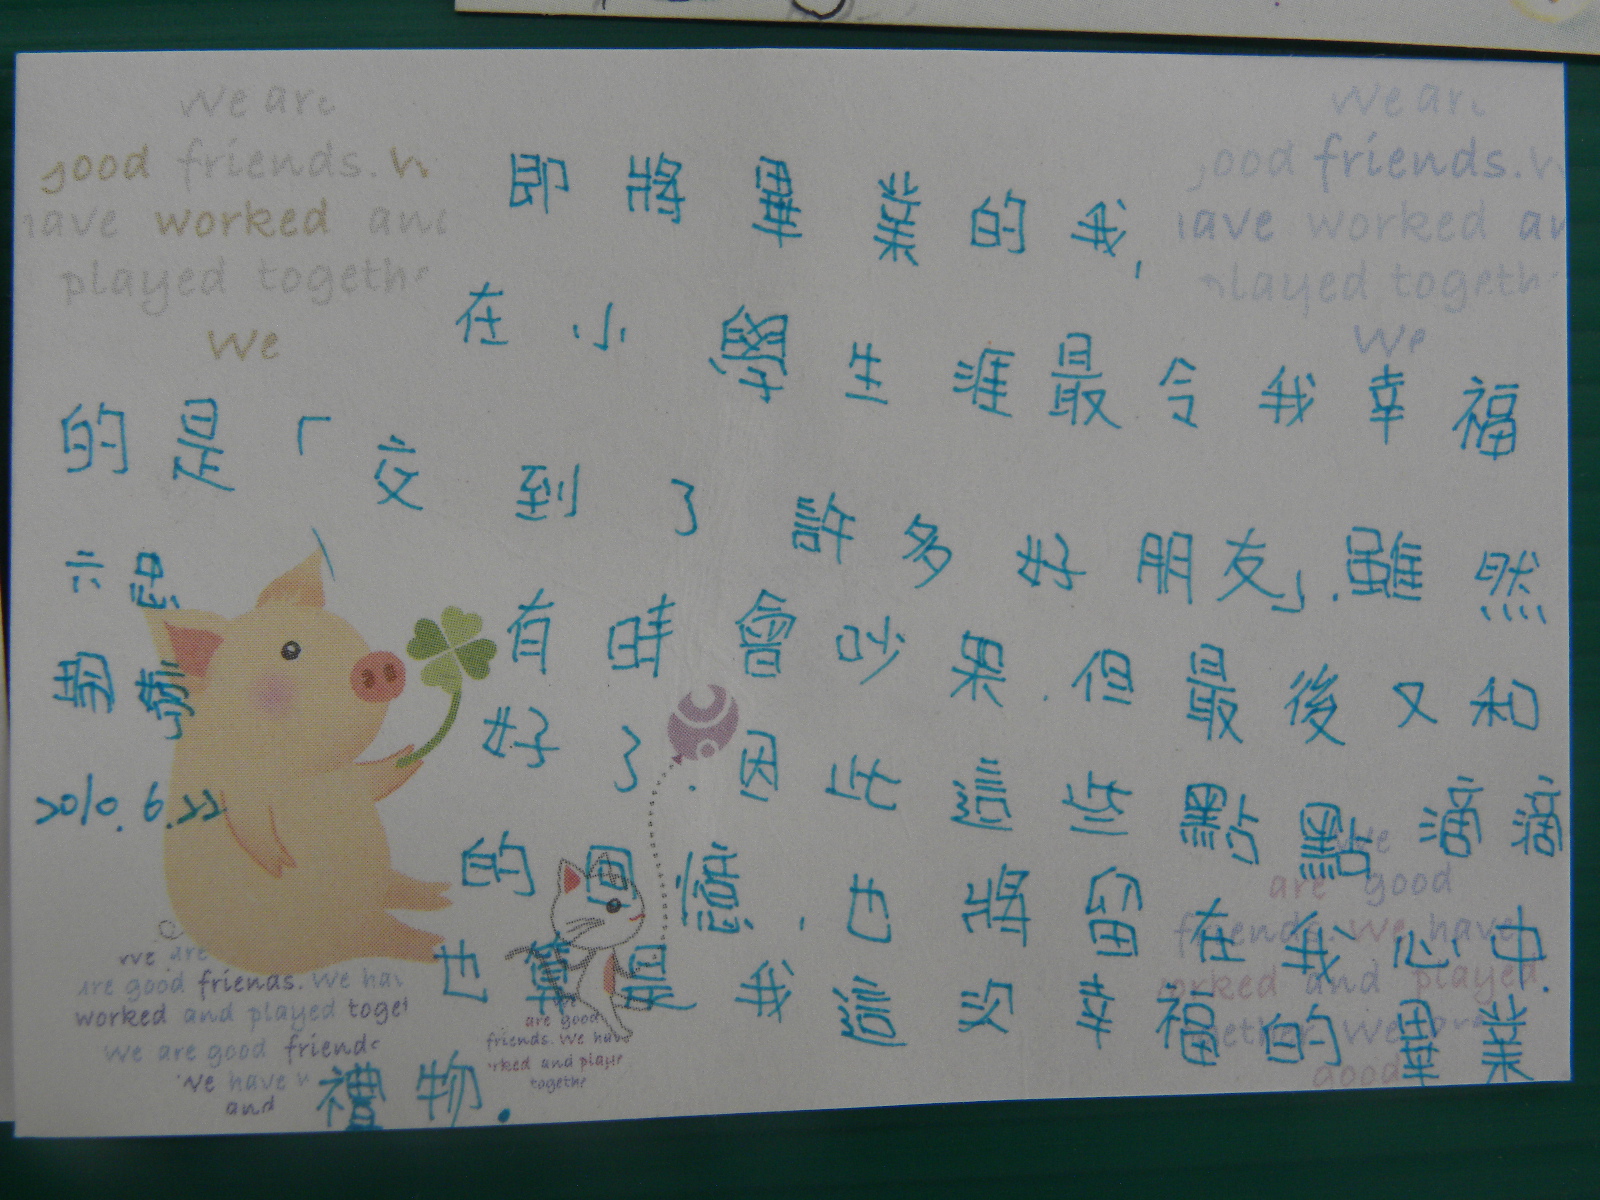 We are
good friends. W
have worked and
played togethe
We
We are
good friends. W
have worked an
played togeth
We
即將畢業的我,
在小學生涯最令我幸福
的是「交到了許多好朋友」.雖然
有時會吵架.但最後又和
好了.因此這些點點滴滴
的回憶,也將留在我心中.
也算是我這次幸福的畢業
禮物.
六忠
2010.6.22
We are
are good friends. We hav
worked and played toget
We are good friends
We have w
and
are good
friends. We have
rked and playe
togethe
We
are good
friends. We have
worked and played
gether. We are
good